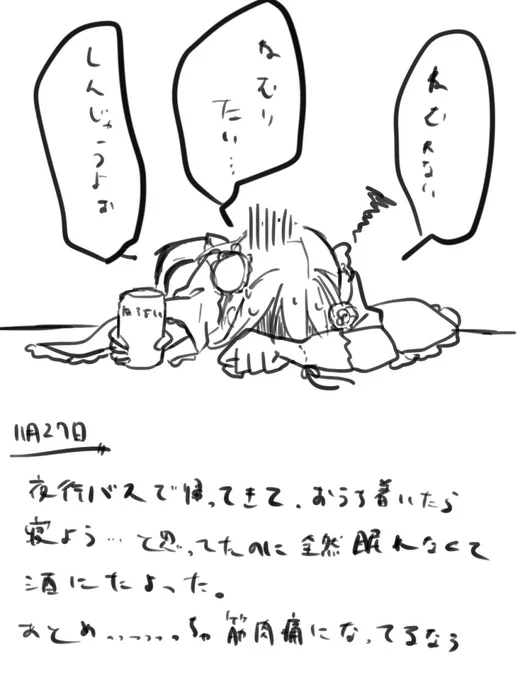 ねむれない
ねむり
たい…
しんじゃうよぉ
ほろよい
11月27日
夜行バスで帰ってきて、おうち着いたら
寝よう…と思ってたのに全然眠れなくて
酒にたよった。
あとめっっっっっちゃ筋肉痛になってるなう